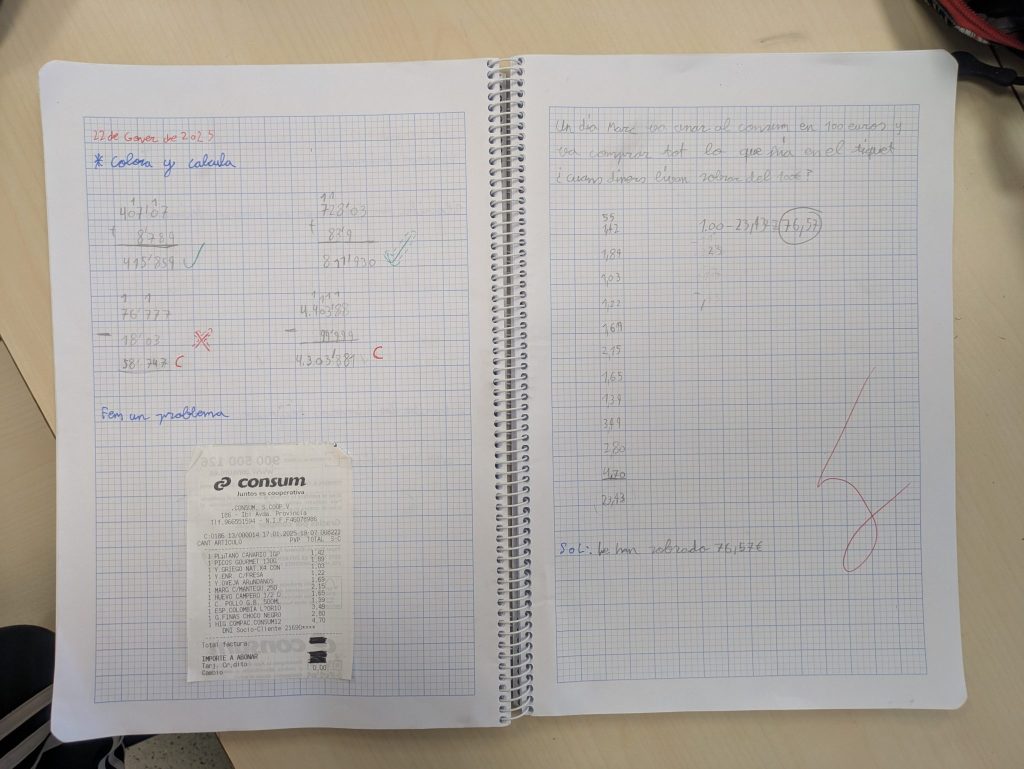 22 de Gener de 2025
* Colora y calcula
407107
+ 8789
415'859
728'03
+ 829
811'930
76'777
- 18'03
58'747 C
4.403'88
- 99'999
4.303'881 C
Fem un problema
consum
Juntos es cooperativa
.CONSUM, S.COOP.V.
186 - Ibi Avda. Provincia
Tlf.966551594 - N.I.F.F46078986
C:0186 13/000014 17.01.2025 19:07 068222
CANT ARTICULO PVP TOTAL S C
1 PLáTANO CANARIO IGP 1,42
1 PICOS GOURMET 130G 1,89
1 Y.GRIEGO NAT.X4 CON 1,03
1 Y.ENR. C/FRESA 1,22
1 Y.OVEJA ARáNDANOS 1,69
1 MARG C/MANTEQU 250 2,15
1 HUEVO CAMPERO 1/2 D 1,65
1 C. POLLO G.B. 500ML 1,39
1 ESP.COLOMBIA L?OR10 3,49
1 G.FINAS CHOCO NEGRO 2,80
1 HIG.COMPAC CONSUM12 4,70
DNI Socio-Cliente 21690****
Total factura:
IMPORTE A ABONAR
Tarj. Crédito
Cambio 0,00
Un día Marc va anar al consum en 100 euros y
va comprar tot lo que fia en el tiquet
¿cuans diners li van sobrar del 100€?
55
1,42
1,89
1,03
1,22
1,69
2,15
1,65
1,39
3,49
2,80
4,70
23,43
100-23,43=76,57
23
SOL: Le han sobrado 76,57€